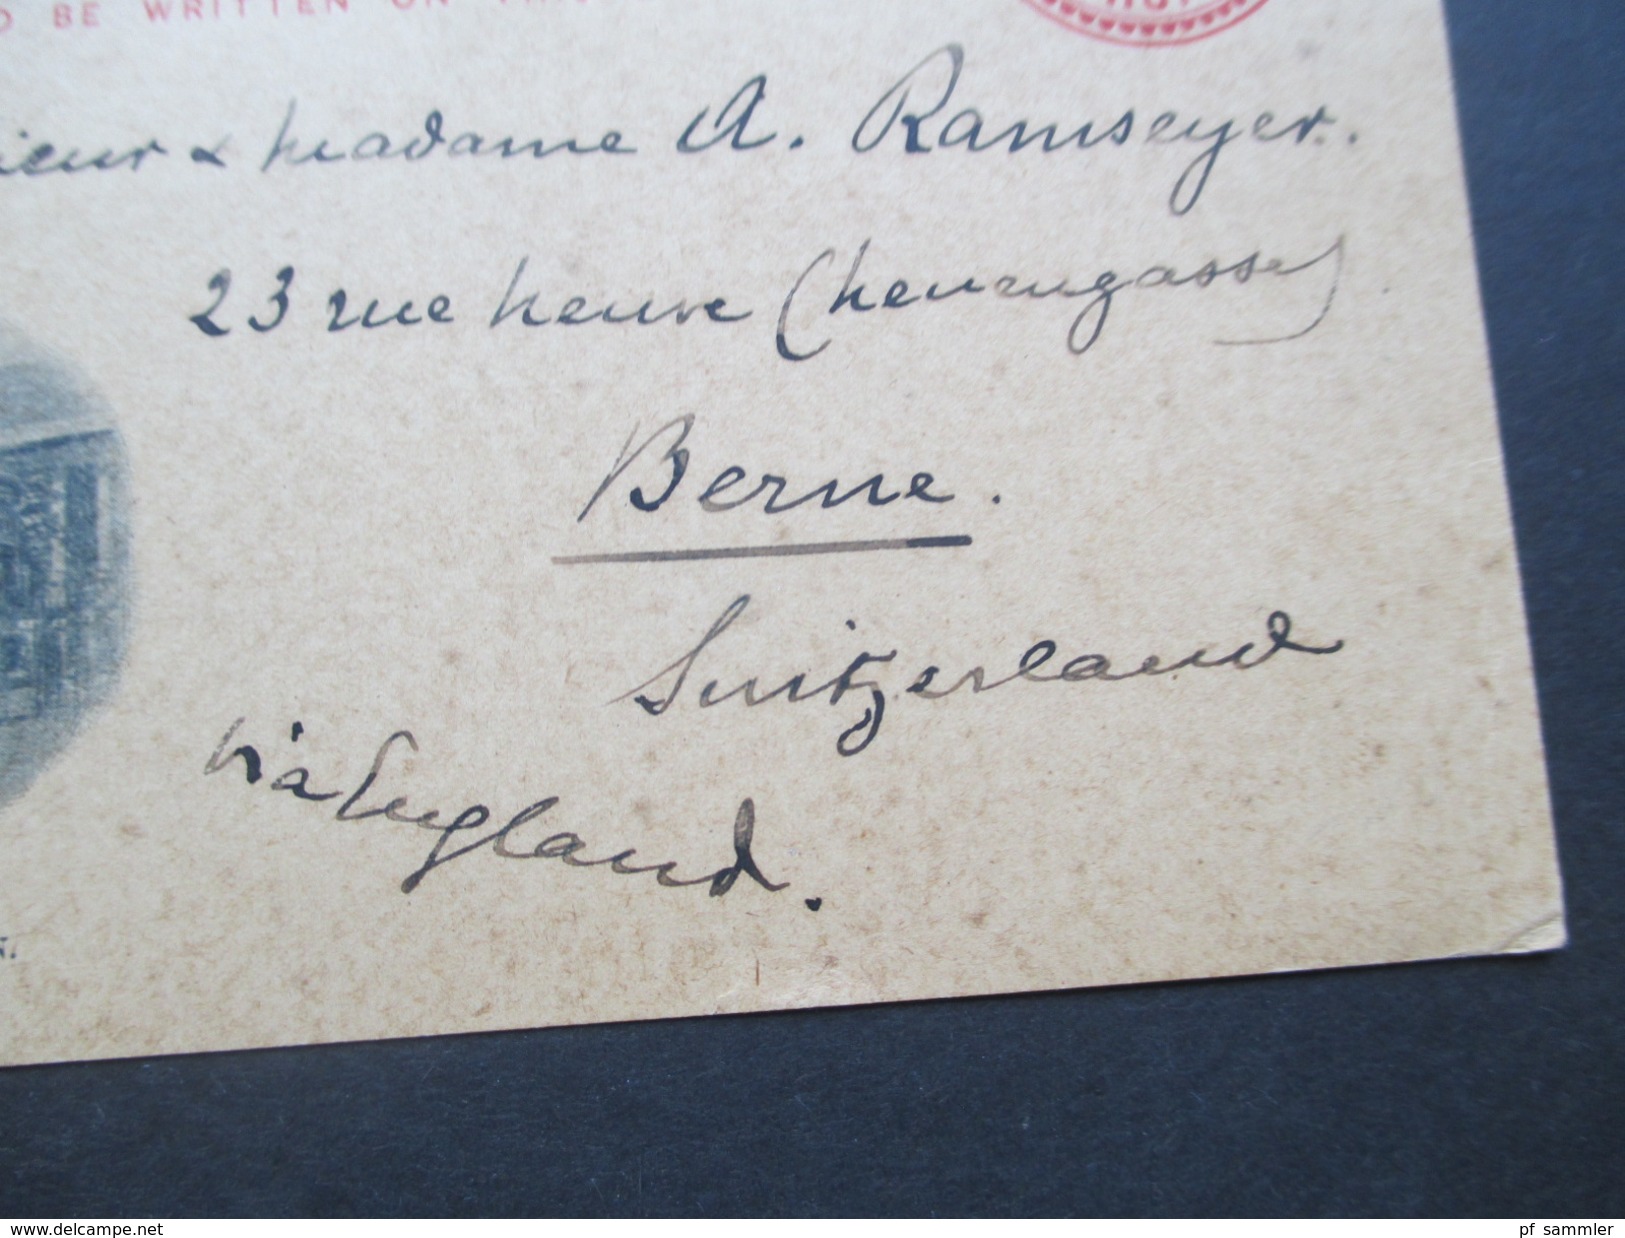 BE WRITTEN ON
& Madame A. Ramseyer.
23 rue neuve (neuengasse)
Berne.
Switzerland
via England.
www.delcampe.net
pf_sammler